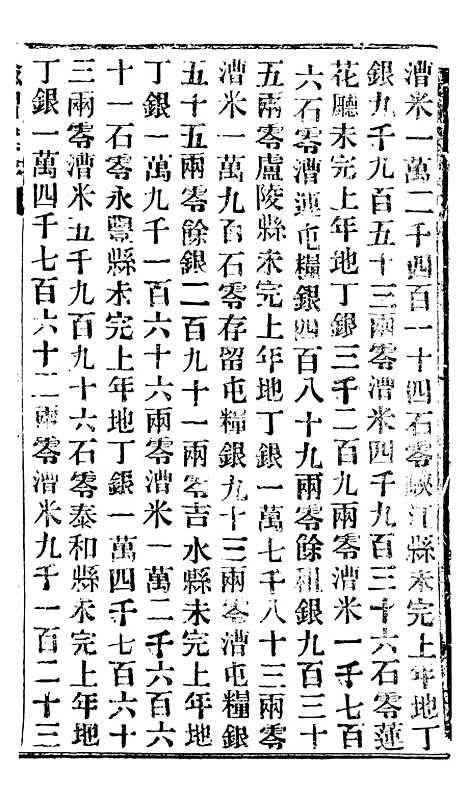 漕米一萬二千四百一十四石零峽江縣未完上年地丁
銀九千九百五十三兩零漕米四千九百三十六石零蓮
花廳未完上年地丁銀三千二百九兩零漕米一千七百
六石零漕運屯糧銀四百八十九兩零餘租銀九百三十
五兩零盧陵縣未完上年地丁銀一萬七千八十三兩零
漕米一萬九百石零存留屯糧銀九十三兩零漕屯糧銀
五十五兩零餘銀二百九十一兩零吉水縣未完上年地
丁銀一萬九千一百六十六兩零漕米一萬二千六百六
十一石零永豐縣未完上年地丁銀一萬四千七百六十
三兩零漕米五千九百九十六石零泰和縣未完上年地
丁銀一萬四千七百六十二兩零漕米九千一百二十三